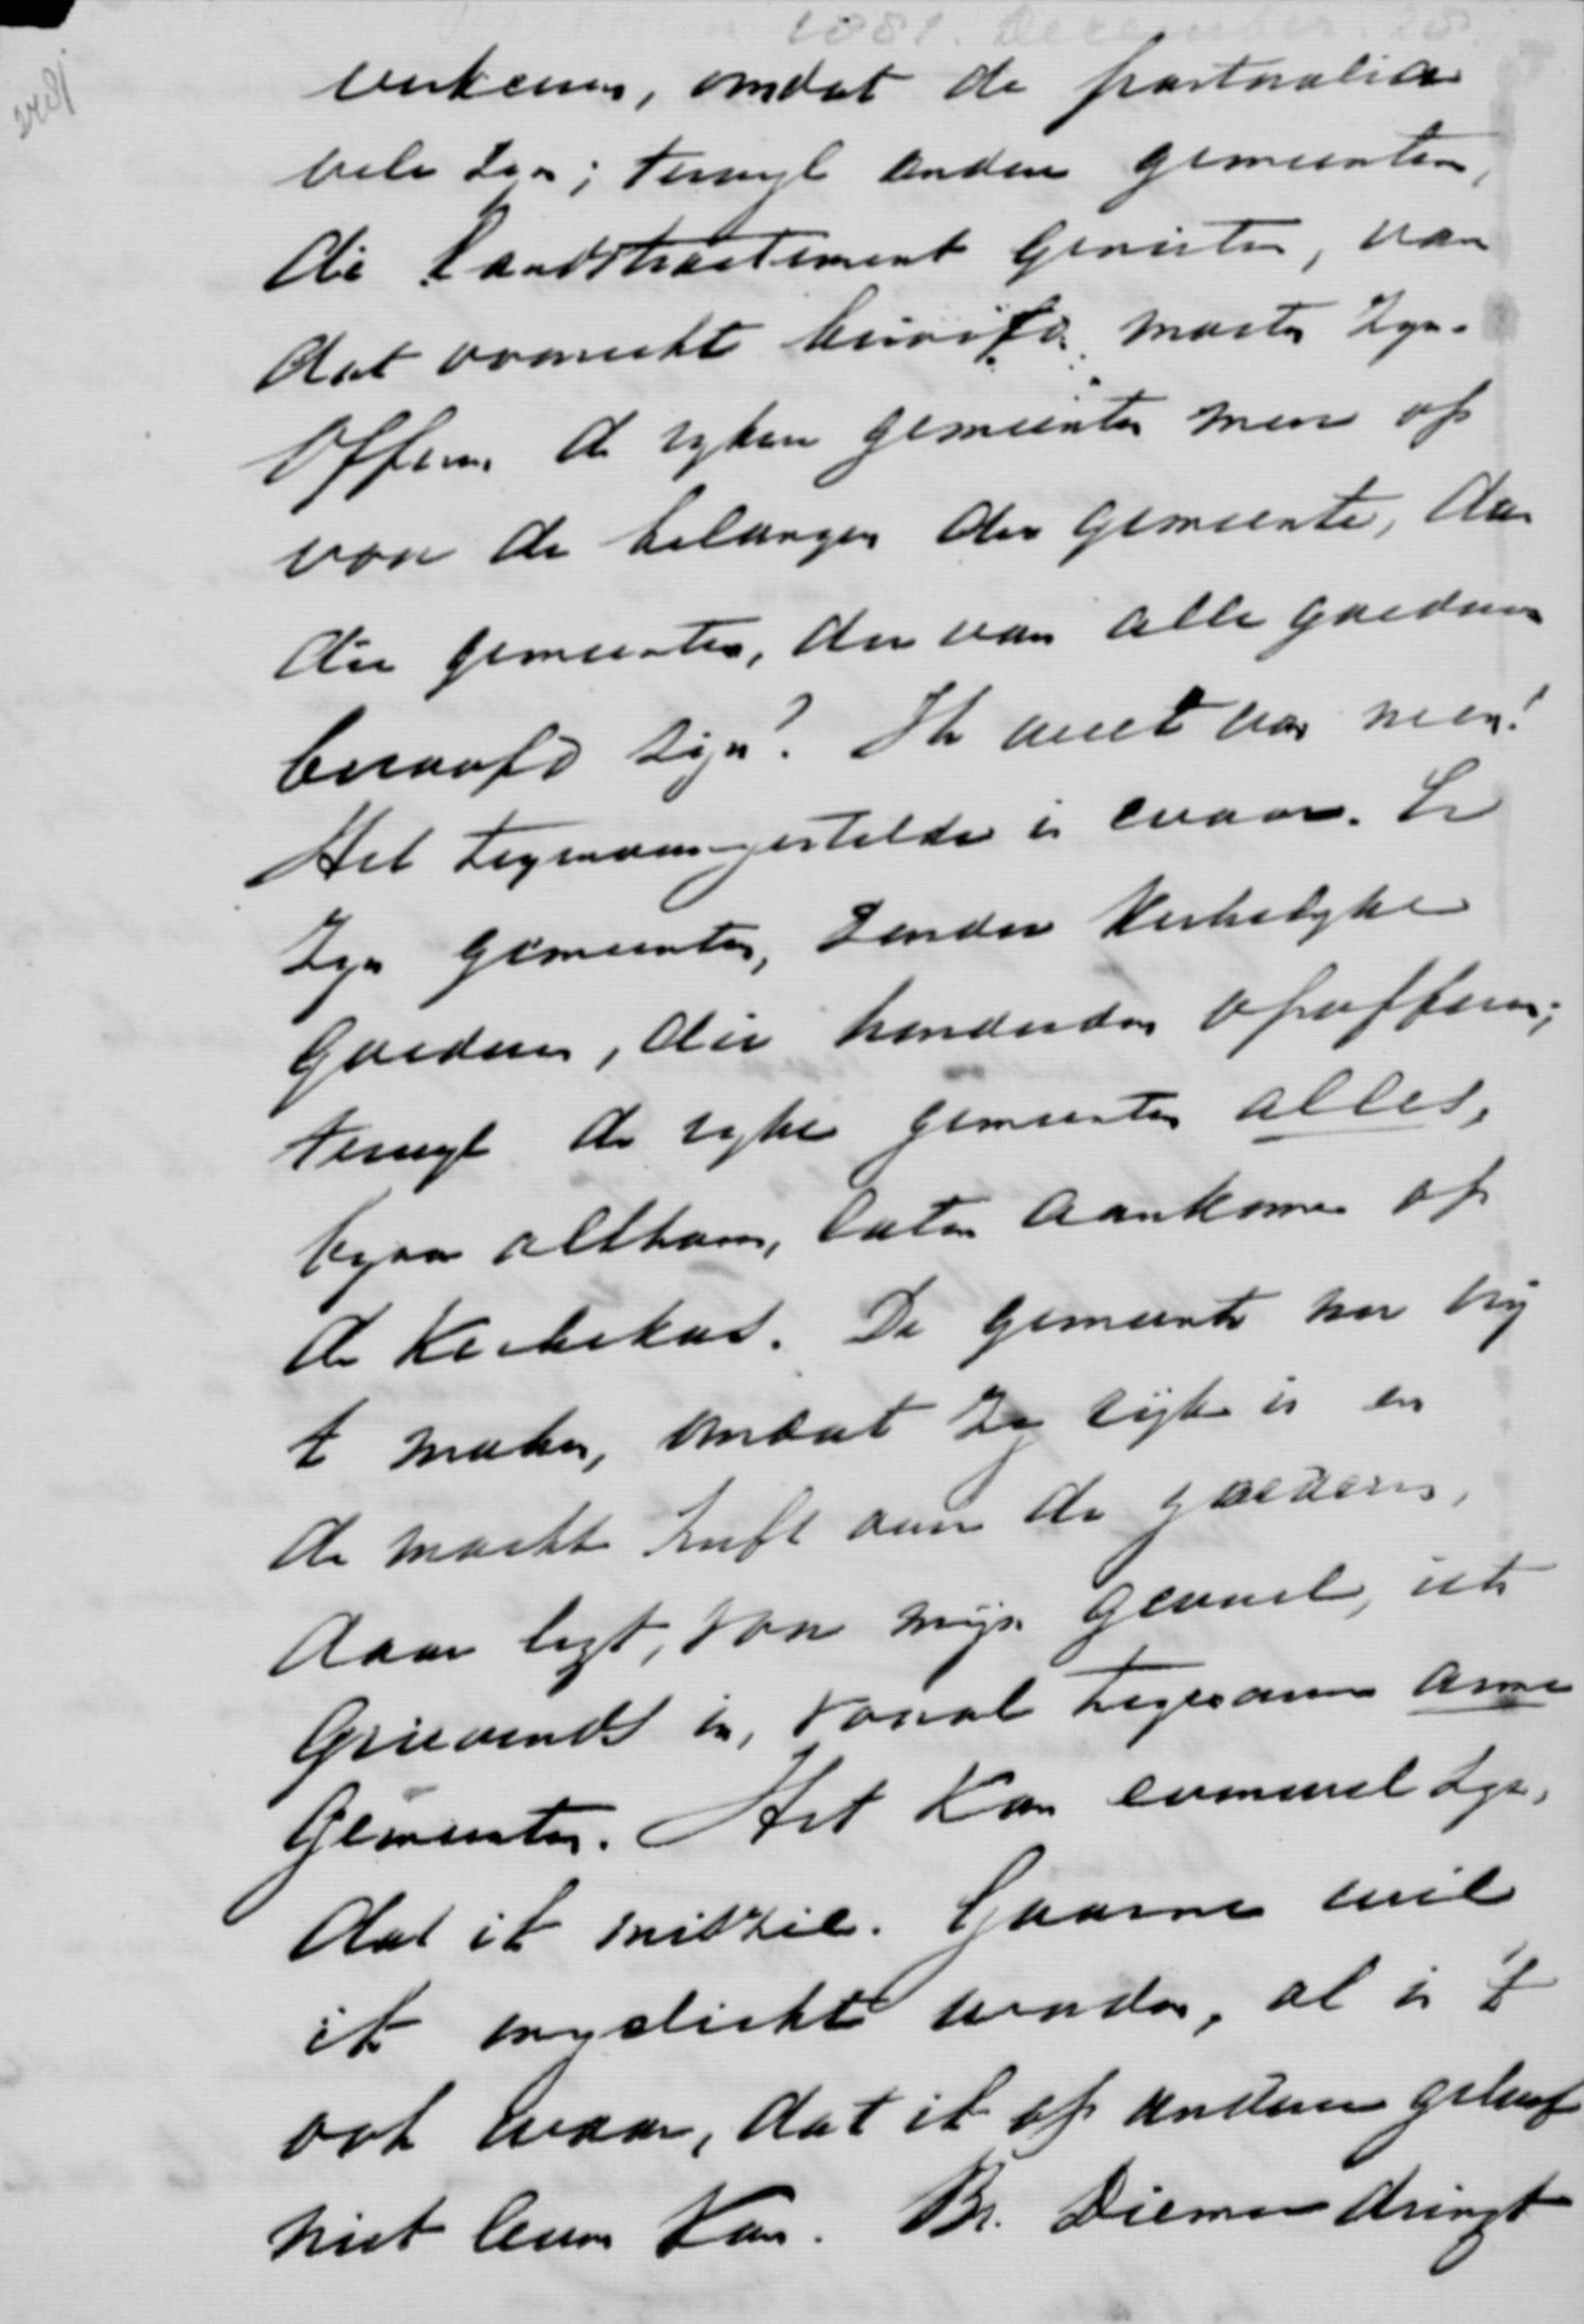 1881. December. 28
verkeeren, omdat de pastoralia
vele zyn; terwyl andere gemeenten,
die Landstractement genieten, van
dat voorrecht beroofd moeten zyn.
Offeren de ryken gemeenten meer op
voor de belangen der gemeente, dan
die gemeenten, die van alle goederen
beroofd zijn? Ik weet van neen!
Het tegenovergestelde is waar. Er
zyn gemeenten, zonder Kerkelyke
goederen, die honderden opofferen;
terwyl de ryke gemeenten alles,
byna althans, laten aankomen op
de Kerkekas. De gemeente nu vrij
te maken, omdat zy rijk is en
de macht heeft over de goederen,
daar ligt, voor mijn gevoel, iets
grievends in, vooral tegenover arme
Gemeenten. Het kan evenwel zyn,
dat ik miszie. Gaarne wil
ik ingelicht worden, al is 't
ook waar, dat ik op anderen geloof
niet leven kan. Br. Diemer dringt